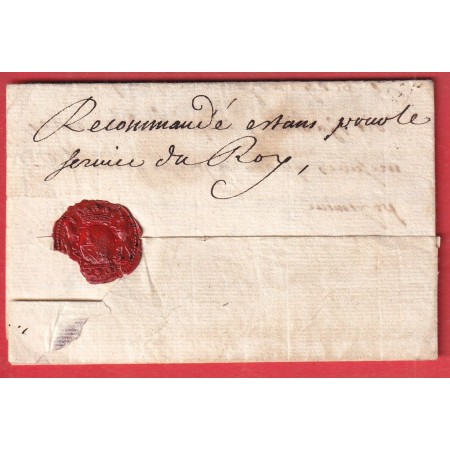 Recommandé estans pour le
service du Roy,